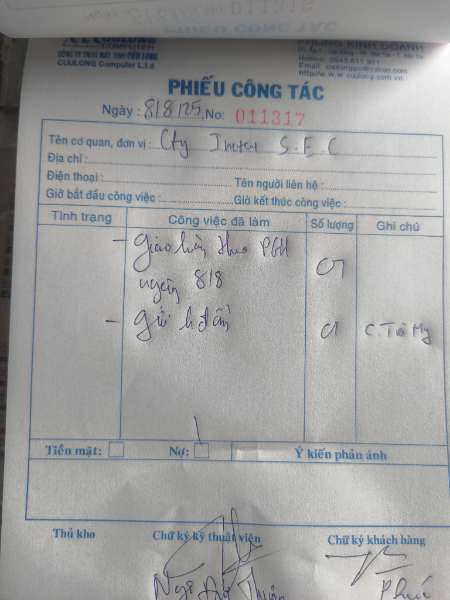 PHIẾU CÔNG TÁC
CUULONG
COMPUTER
CUULONG Computer L.t.d
KINH DOANH
PHIẾU CÔNG TÁC
Ngày : 8/8/25 No: 011317
Tên cơ quan, đơn vị : Cty S.E.C
Địa chỉ :
Điện thoại : Tên người liên hệ :
Giờ bắt đầu công việc : Giờ kết thúc công việc :
Tình trạng Công việc đã làm Số lượng Ghi chú
- Giao hàng theo PGH 01
ngày 8/8
- gửi 01 C.
Tiền mặt: Nợ: Ý kiến phản ánh
Thủ kho Chữ ký kỹ thuật viên Chữ ký khách hàng
Ngô Thuận Phúc